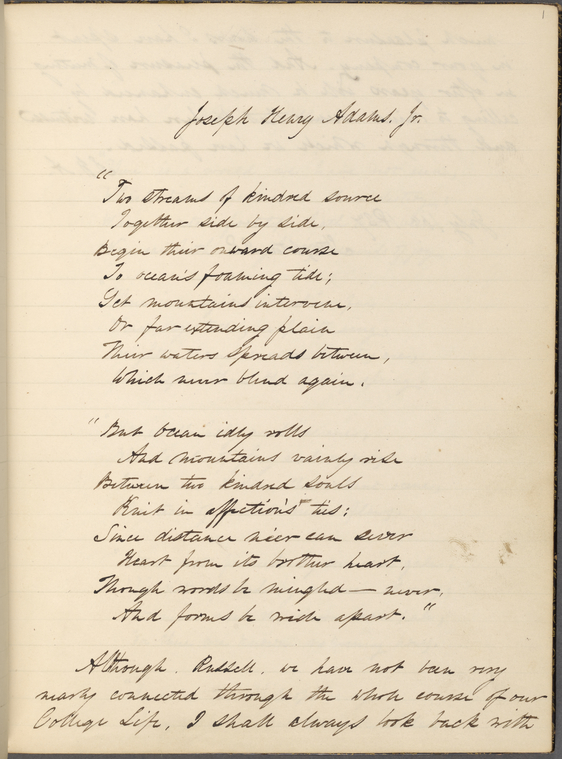 1
Joseph Henry Adams. Jr.
"Two streams of kindred source
Together side by side,
Begin their onward course
To ocean's foaming tide;
Yet mountains intervene,
Or far extending plain
Their waters spreads between,
Which never blend again.
"But Ocean idly rolls
And mountains vainly rise
Between two kindred souls
Knit in affection's ties;
Since distance ne'er can sever
Heart from its brother heart,
Though words be mingled — never,
And forms be wide apart."
Although, Russell, we have not been very
nearly connected through the whole course of our
College Life, I shall always look back with